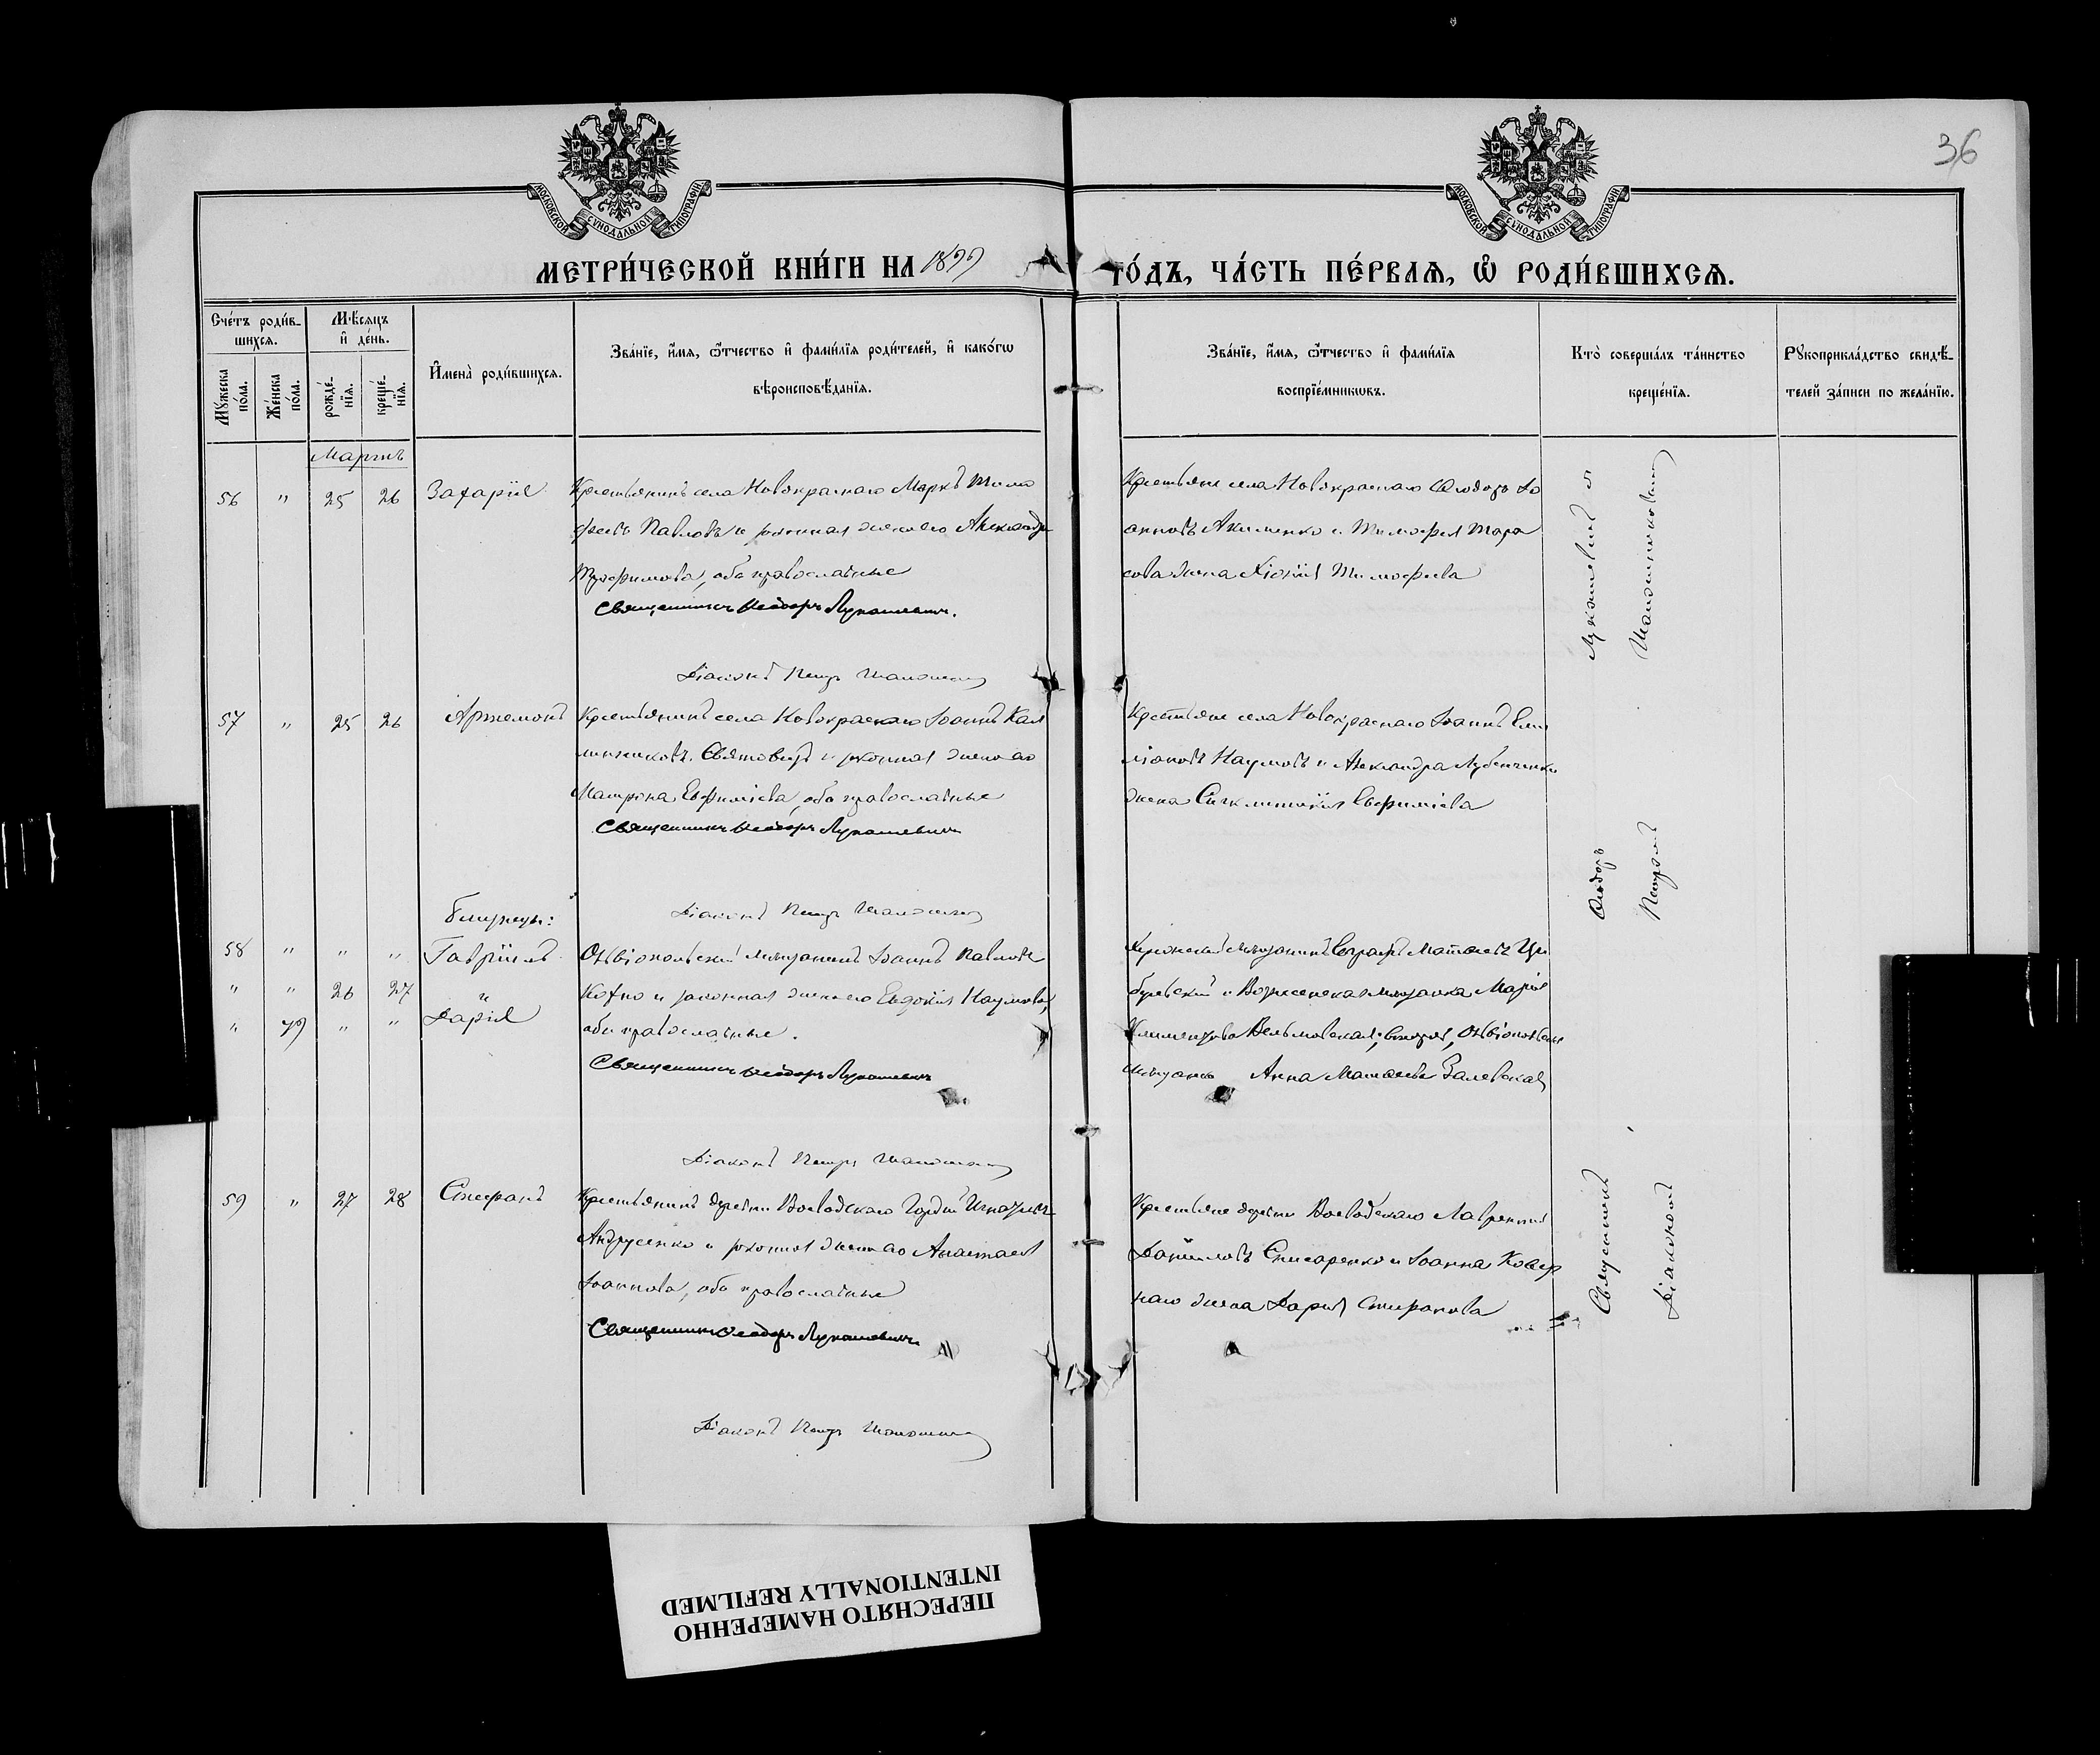 36
МОСКОВСКОЙ СУНОДАЛЬНОЙ ТИПОГРАФІИ
МОСКОВСКОЙ СУНОДАЛЬНОЙ ТИПОГРАФІИ
МЕТРИ́ЧЕСКОЙ КНИ́ГИ НА 1899 ГО́ДЪ, ЧА́СТЬ ПЕ́РВАѦ, Ѡ РОДИ́ВШИХСѦ.
Сче́тъ роди́в-
шихсѧ.
Мꙋжеска по́ла.
Же́нска по́ла.
Мѣ́сѧцъ
и҆ де́нь.
рожде́-
нїѧ.
креще́-
нїѧ.
И҆мена̀ роди́вшихсѧ.
Зва́нїе, и҆́мѧ, ѻ҆́тчество и҆ фами́лїѧ роди́телей, и҆ како́гѡ
вѣроисповѣ́данїѧ.
Зва́нїе, и҆́мѧ, ѻ҆́тчество и҆ фами́лїѧ
воспрїе́мникѡвъ.
Кто̀ соверша́лъ та́инство
креще́нїѧ.
Рꙋкоприкла́дство свидѣ́-
телей за́писи по жела́нїю.
Мартъ
56 " 25 26 Захарія
Крестьянинъ села Новокраснаго Маркъ Тимо
феевъ Павловъ и законная жена его Александра
Трофимова, оба православные
Священникъ Ѳеодоръ Лукашевичъ.
Діаконъ Петръ
Крестьяне села Новокраснаго Ѳеодоръ Іо
анновъ Акименко и Тимофея Тара
сова жена Хіонія Тимофеева
57 " 25 26 Артемонъ
Крестьянинъ села Новокраснаго Іоаннъ Кал
линниковъ и законная жена его
Матрона Евфиміева, оба православные
Священникъ Ѳеодоръ Лукашевичъ
Діаконъ Петръ
Крестьяне села Новокраснаго Іоаннъ Еми
ліановъ Наумовъ и Александра Лубенченко
жена Синклитикія Евфиміева
близнецы:
58 " " " Гавріилъ
" " 26 27 и
" 49 " " Дарія
Ольвіопольскій мѣщанинъ Іоаннъ Павловъ
Кохно и законная жена его Евдокія Наумова,
оба православные.
Священникъ Ѳеодоръ Лукашевичъ
Діаконъ Петръ
Херсонскій мѣщанинъ Матѳеевъ
и Вознесенская мѣщанка Марія
Климентова Вельмовская; вторая, Ольвіопольск
мѣщанка Анна Матѳеева Залевская
59 " 27 28 Стефанъ
Крестьянинъ деревни Воеводскаго Гордій Игнатьевъ
Андрусенко и законная жена его Анастасія
Іоаннова, оба православные
Священникъ Ѳеодоръ Лукашевичъ
Діаконъ Петръ
Крестьяне деревни Воеводскаго Лаврентій
Даніиловъ Снисаренко и Іоанна Ковер
наго жена Дарія Стефанова
Священникъ Ѳеодоръ Лукашевичъ съ
Діакономъ Петромъ
ПЕРЕСНЯТО НАМЕРЕННО
INTENTIONALLY REFILMED